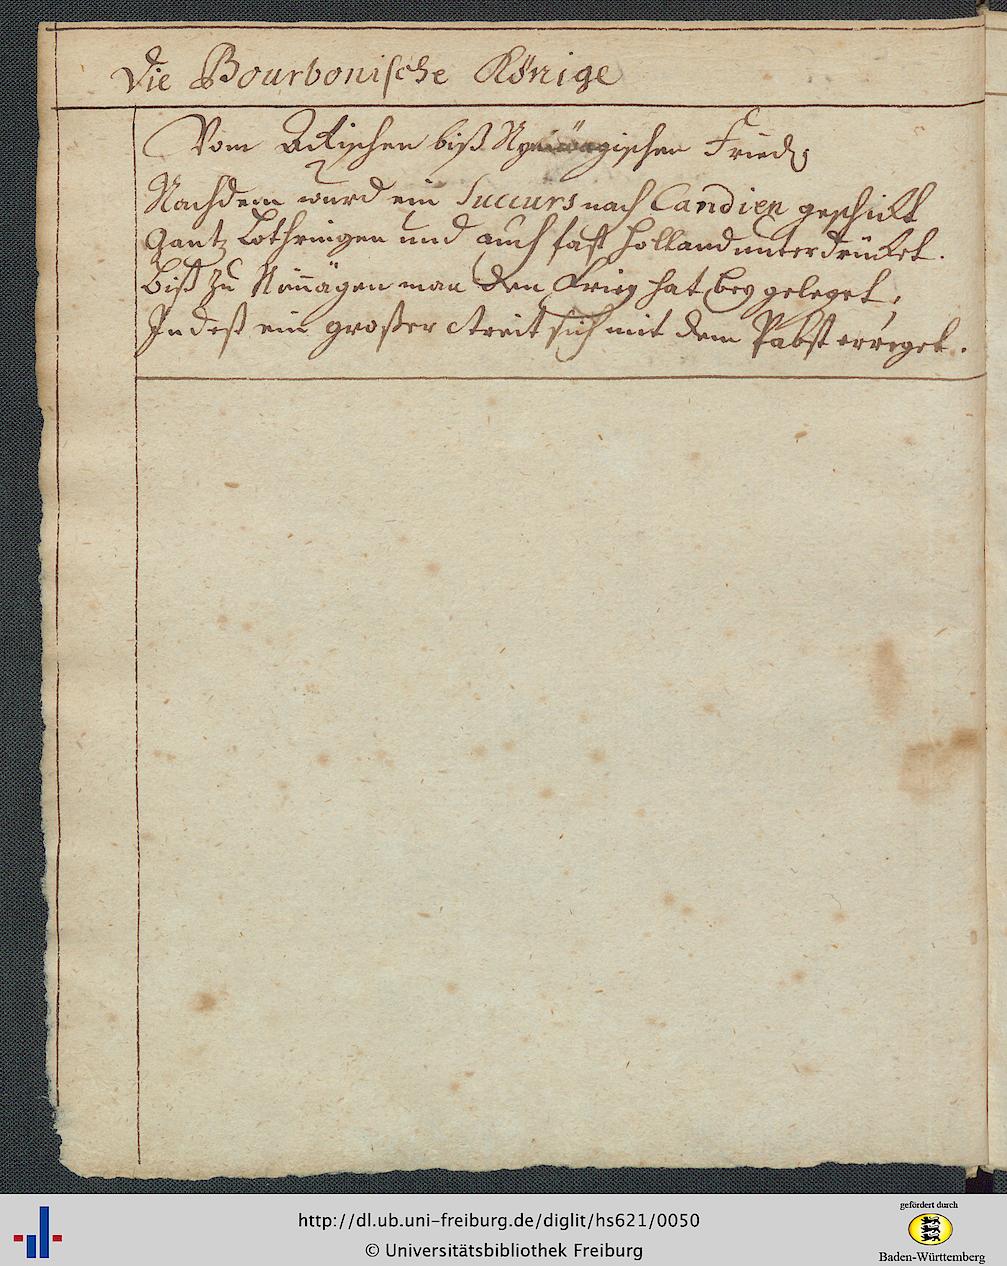 Die Bourbonische Könige
Vom Achischen biß Nymwägischen Fried;
Nachdem wurd ein Succurs nach Candien geschickt
Gantz Lothringen und auch fast Holland unterdrücket.
Biß zu Nimägen man den Krieg hat beygeleget,
In deß ein großer Streit sich mit dem Pabst erreget.
http://dl.ub.uni-freiburg.de/diglit/hs621/0050
© Universitätsbibliothek Freiburg
gefördert durch
Baden-Württemberg